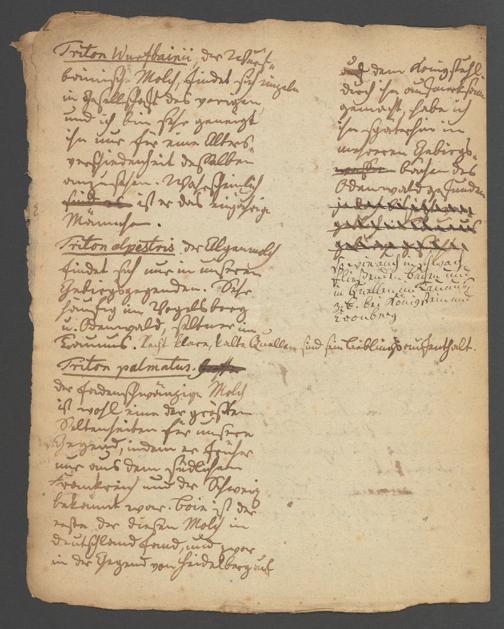 Triton Wurfbainii, der Wurf-
bainische Molch, findet sich einzeln
in Gesellschaft des vorigen
und ich bin sehr geneigt
ihn nur für eine Alters-
verschiedenheit desselben
anzusehen. Wahrscheinlich
ist er das einjährige
Männchen.
Triton alpestris der Alpenmolch
findet sich nur in unseren
Gebirgsgegenden. Sehr
häufig im Vogelsberg
u. Odenwald, seltner im
Taunus. Kalte Quellen sind sein Lieblingsaufenthalt.
Triton palmatus.
der fadenschwänzige Molch
ist wohl eine der größten
Seltenheiten für unsere
Gegend, indem er früher
nur aus dem südlichen
Frankreich und der Schweiz
bekannt war. Boie ist der
erste der diesen Molch in
Deutschland fand, und zwar
in der Gegend von Heidelberg auf
dem Königstuhl
durch ihn aufmerksam
gemacht, habe ich
ihn späterhin in
mehreren Gebirgs-
bächen des
Odenwald gefunden
fließenden und
in Quellen im Taunus
z. B. bei Königstein und
Cronberg